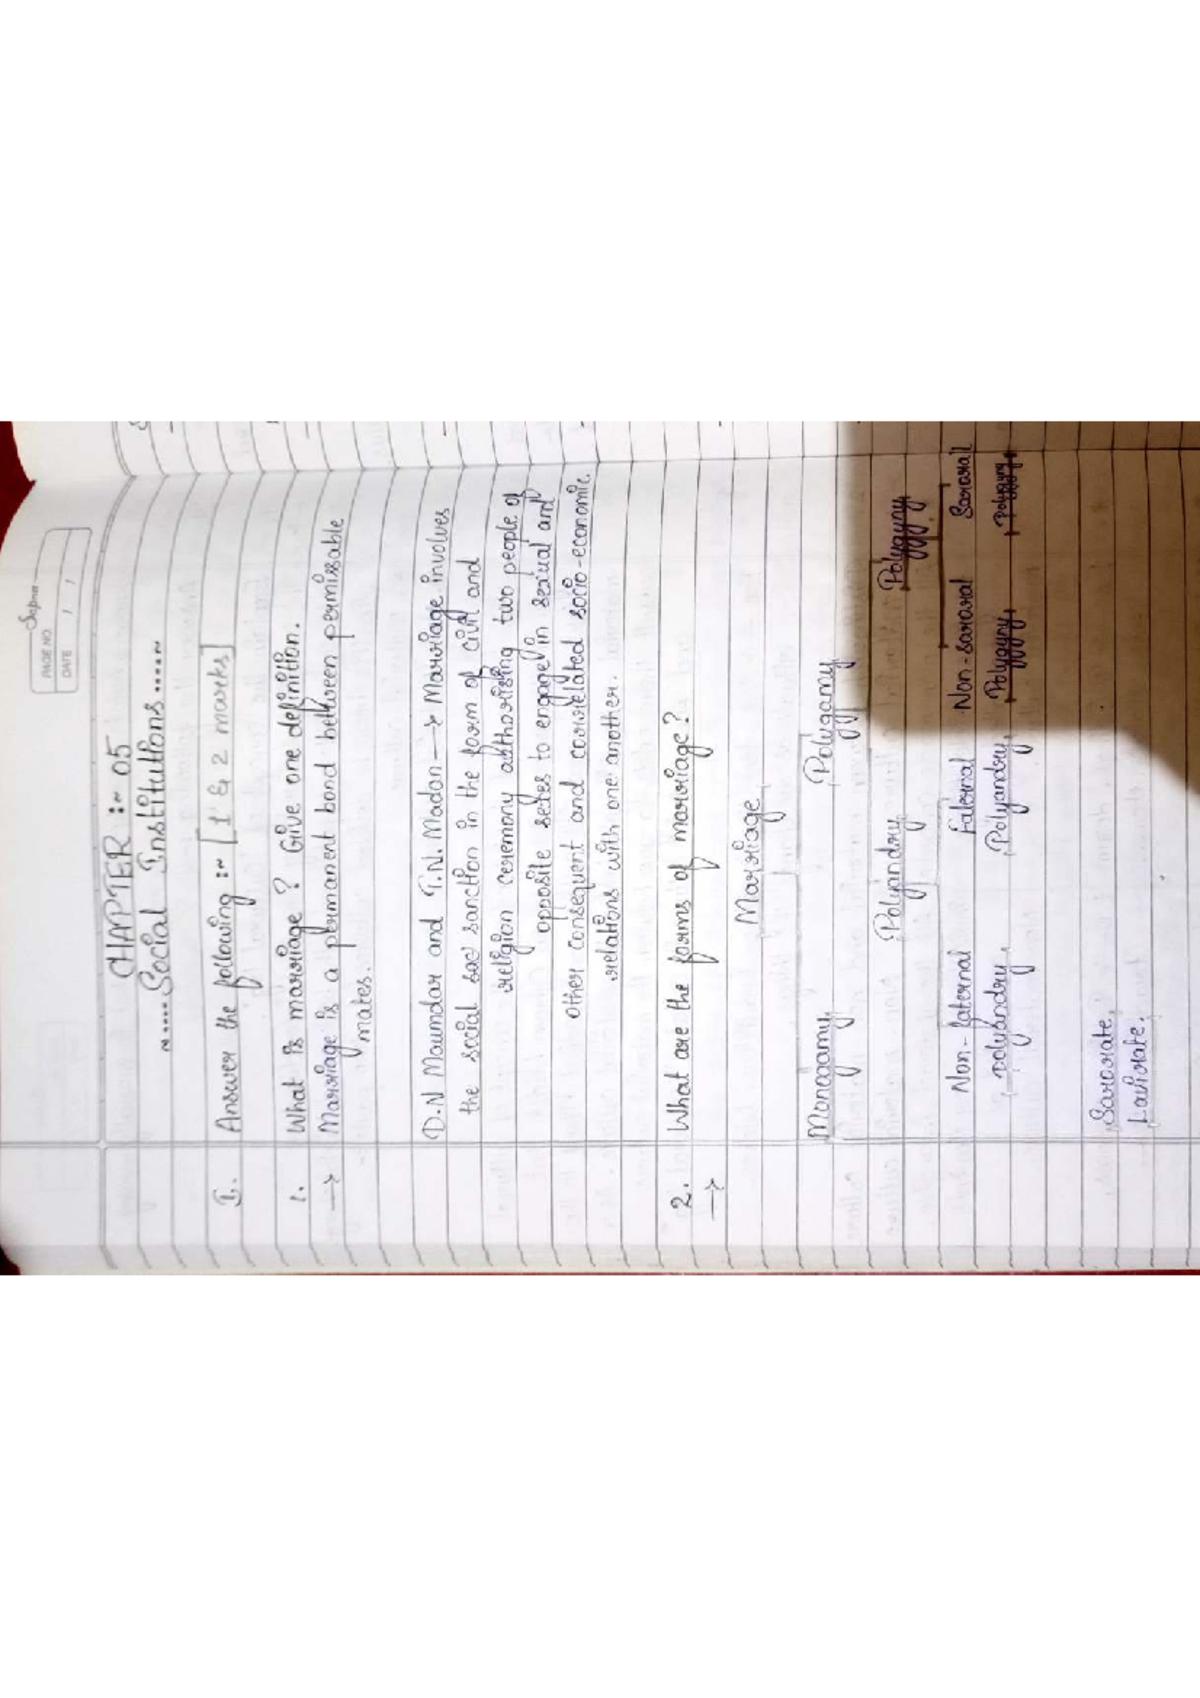 PAGE NO
DATE / /
CHAPTER :~ 05
~.....Social Institutions.....~
I. Answer the following :~ [1 & 2 marks]
1. What is marriage ? Give one definition.
→ Marriage is a permanent bond between permissable
mates.
D.N Moumdar and T.N. Madan → Marriage involves
the social sanction in the form of civil and
religion ceremony authorising two people of
opposite sexes to engage in sexual and
other consequent and correlated socio-economic.
relations with one another.
2. What are the forms of marriage?
→
Marriage
Monogamy Polygamy
Polyandry Polygyny
Non-faternal Faternal Non-sararal Sararal
polyandry Polyandry Polygyny Polygyny
Sarorate,
Lavirate.